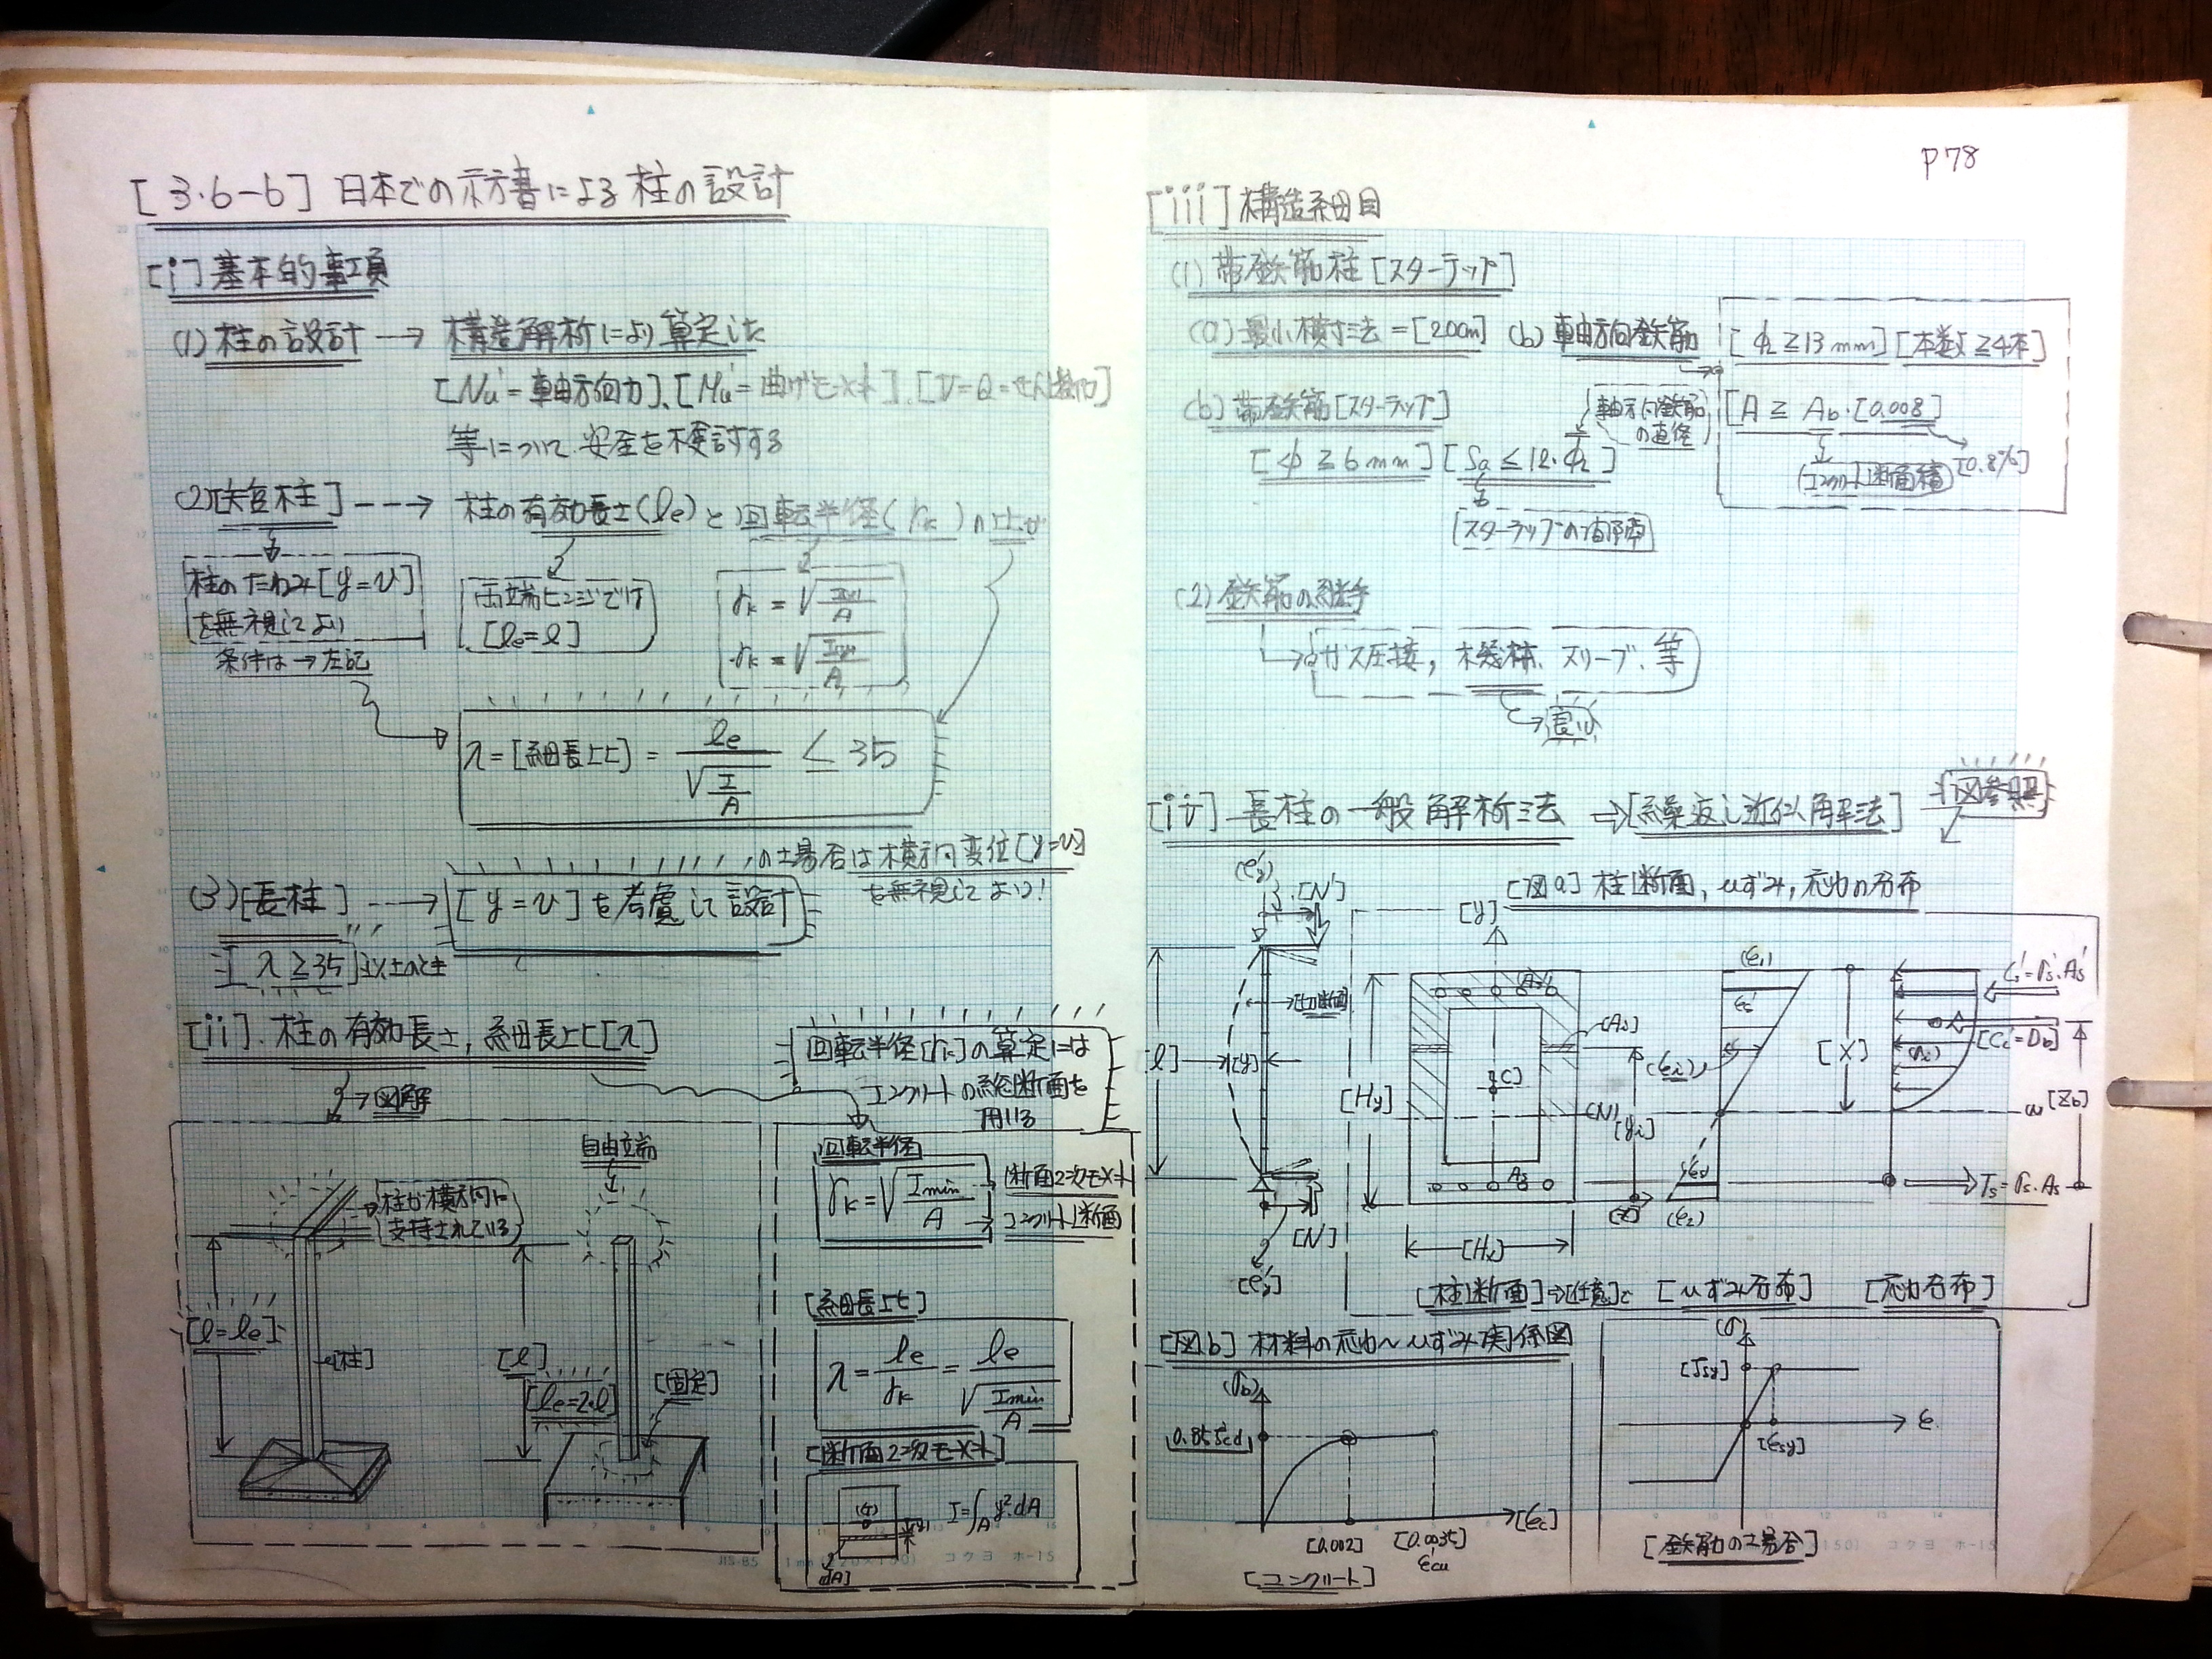 P78
[3.6-6] 日本での示方書による柱の設計
[i] 基本的事項
(1) 柱の設計 → 構造解析により算定した
[Nu'=軸方向力]、[Mu'=曲げモーメント]、[V=Q=せん断力]
等について、安全を検討する
(2) [短柱] ---→ 柱の有効長さ(le)と回転半径(rk)の比が
柱のたわみ[y=v]
を無視してよい
条件は→左記
両端ヒンジでは
[le=l]
rk = √
A
rk = √
A
λ=[細長比]= le / √(I/A) ≦ 35
の場合は横方向変位[y=v]
を無視してよい!
(3) [長柱] ---→ [y=v]を考慮して設計
[λ≧35]以上のとき
[ii]. 柱の有効長さ, 細長比[λ]
→図解
回転半径[rk]の算定には
コンクリートの総断面を
用いる
柱が横方向に
支持されている
[l=le]
[柱]
自由端
[l]
[le=2·l]
[固定]
回転半径
rk=√(Imin/A)
断面2次モーメント
コンクリート断面
[細長比]
λ = le/rk = le/√(Imin/A)
[断面2次モーメント]
I=∫A y²·dA
[dA]
[iii] 構造細目
(1) 帯鉄筋柱[スターラップ]
(a) 最小横寸法=[20cm] (b) 軸方向鉄筋
[φL≧13mm] [本数≧4本]
[A ≧ Ab·[0.008]
[0.8%]
[コンクリート断面積]
(b) 帯鉄筋[スターラップ]
軸方向鉄筋
の直径
[φ≧6mm] [Sa≦12·φL]
[スターラップの間隔]
(2) 鉄筋の継手
→ガス圧接, 機械, スリーブ, 等
→良い
[iv] 長柱の一般解析法 ⇒[繰返し近似解法]
図参照
[図a] 柱断面, ひずみ, 応力の分布
(ey')
[N']
[y]
[l]
[y]
[Hy]
[C]
[As]
As
[Hx]
[N']
[ey']
(ε1)
εs'
(εi)
(ε2)
[yi]
[X]
Cs'=σs'·As'
[Cc'=Db]
[Zb]
Ts=σs·As
[柱断面]→任意
[ひずみ分布]
[応力分布]
[図b] 材料の応力〜ひずみ関係図
(σb)
0.85fcd
[0.002]
[0.0035]
εcu
[εc]
[コンクリート]
(σ)
[fsy]
[εsy]
ε
[鉄筋の場合]
JIS-B5
コクヨ ホ-15
コクヨ ホ-15